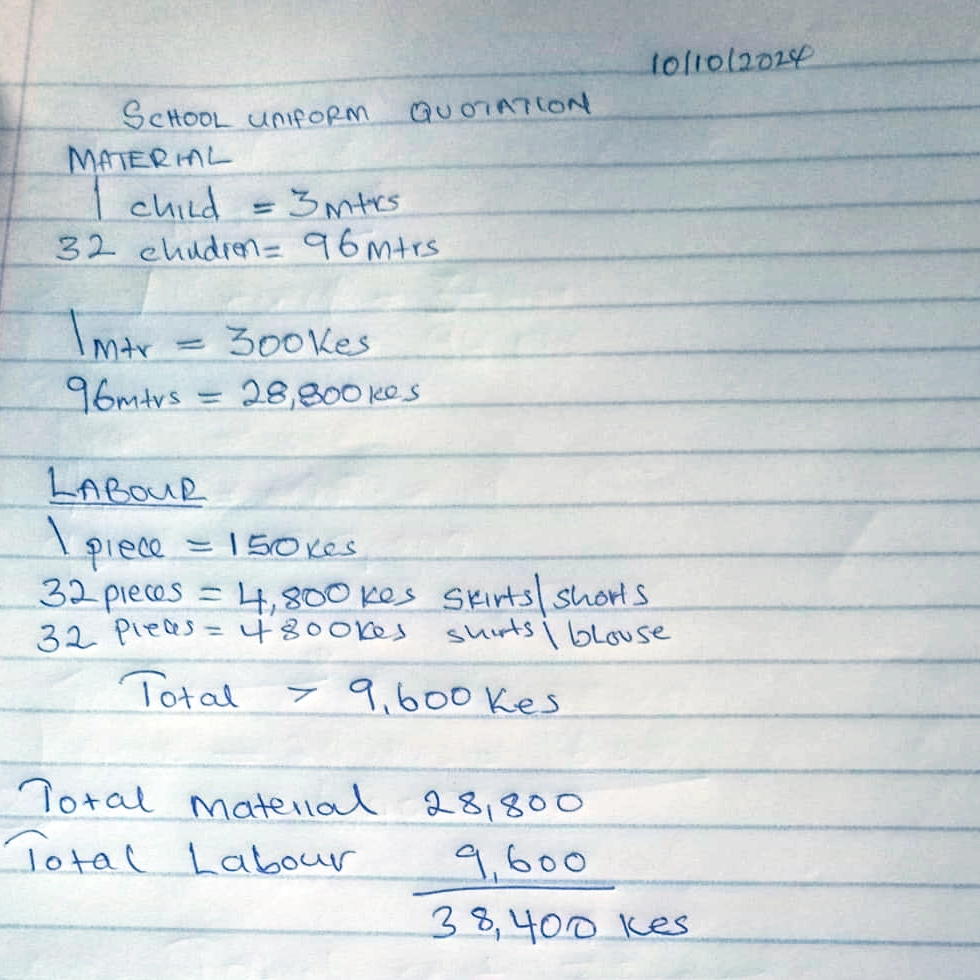 10/10/2024
SCHOOL UNIFORM QUOTATION
MATERIAL
1 child = 3mtrs
32 children = 96mtrs
1mtr = 300Kes
96mtrs = 28,800kes
LABOUR
1 piece = 150kes
32 pieces = 4,800 kes skirts/shorts
32 pieces = 4800kes shirts \ blouse
Total > 9,600 Kes
Total material 28,800
Total Labour 9,600
38,400 kes